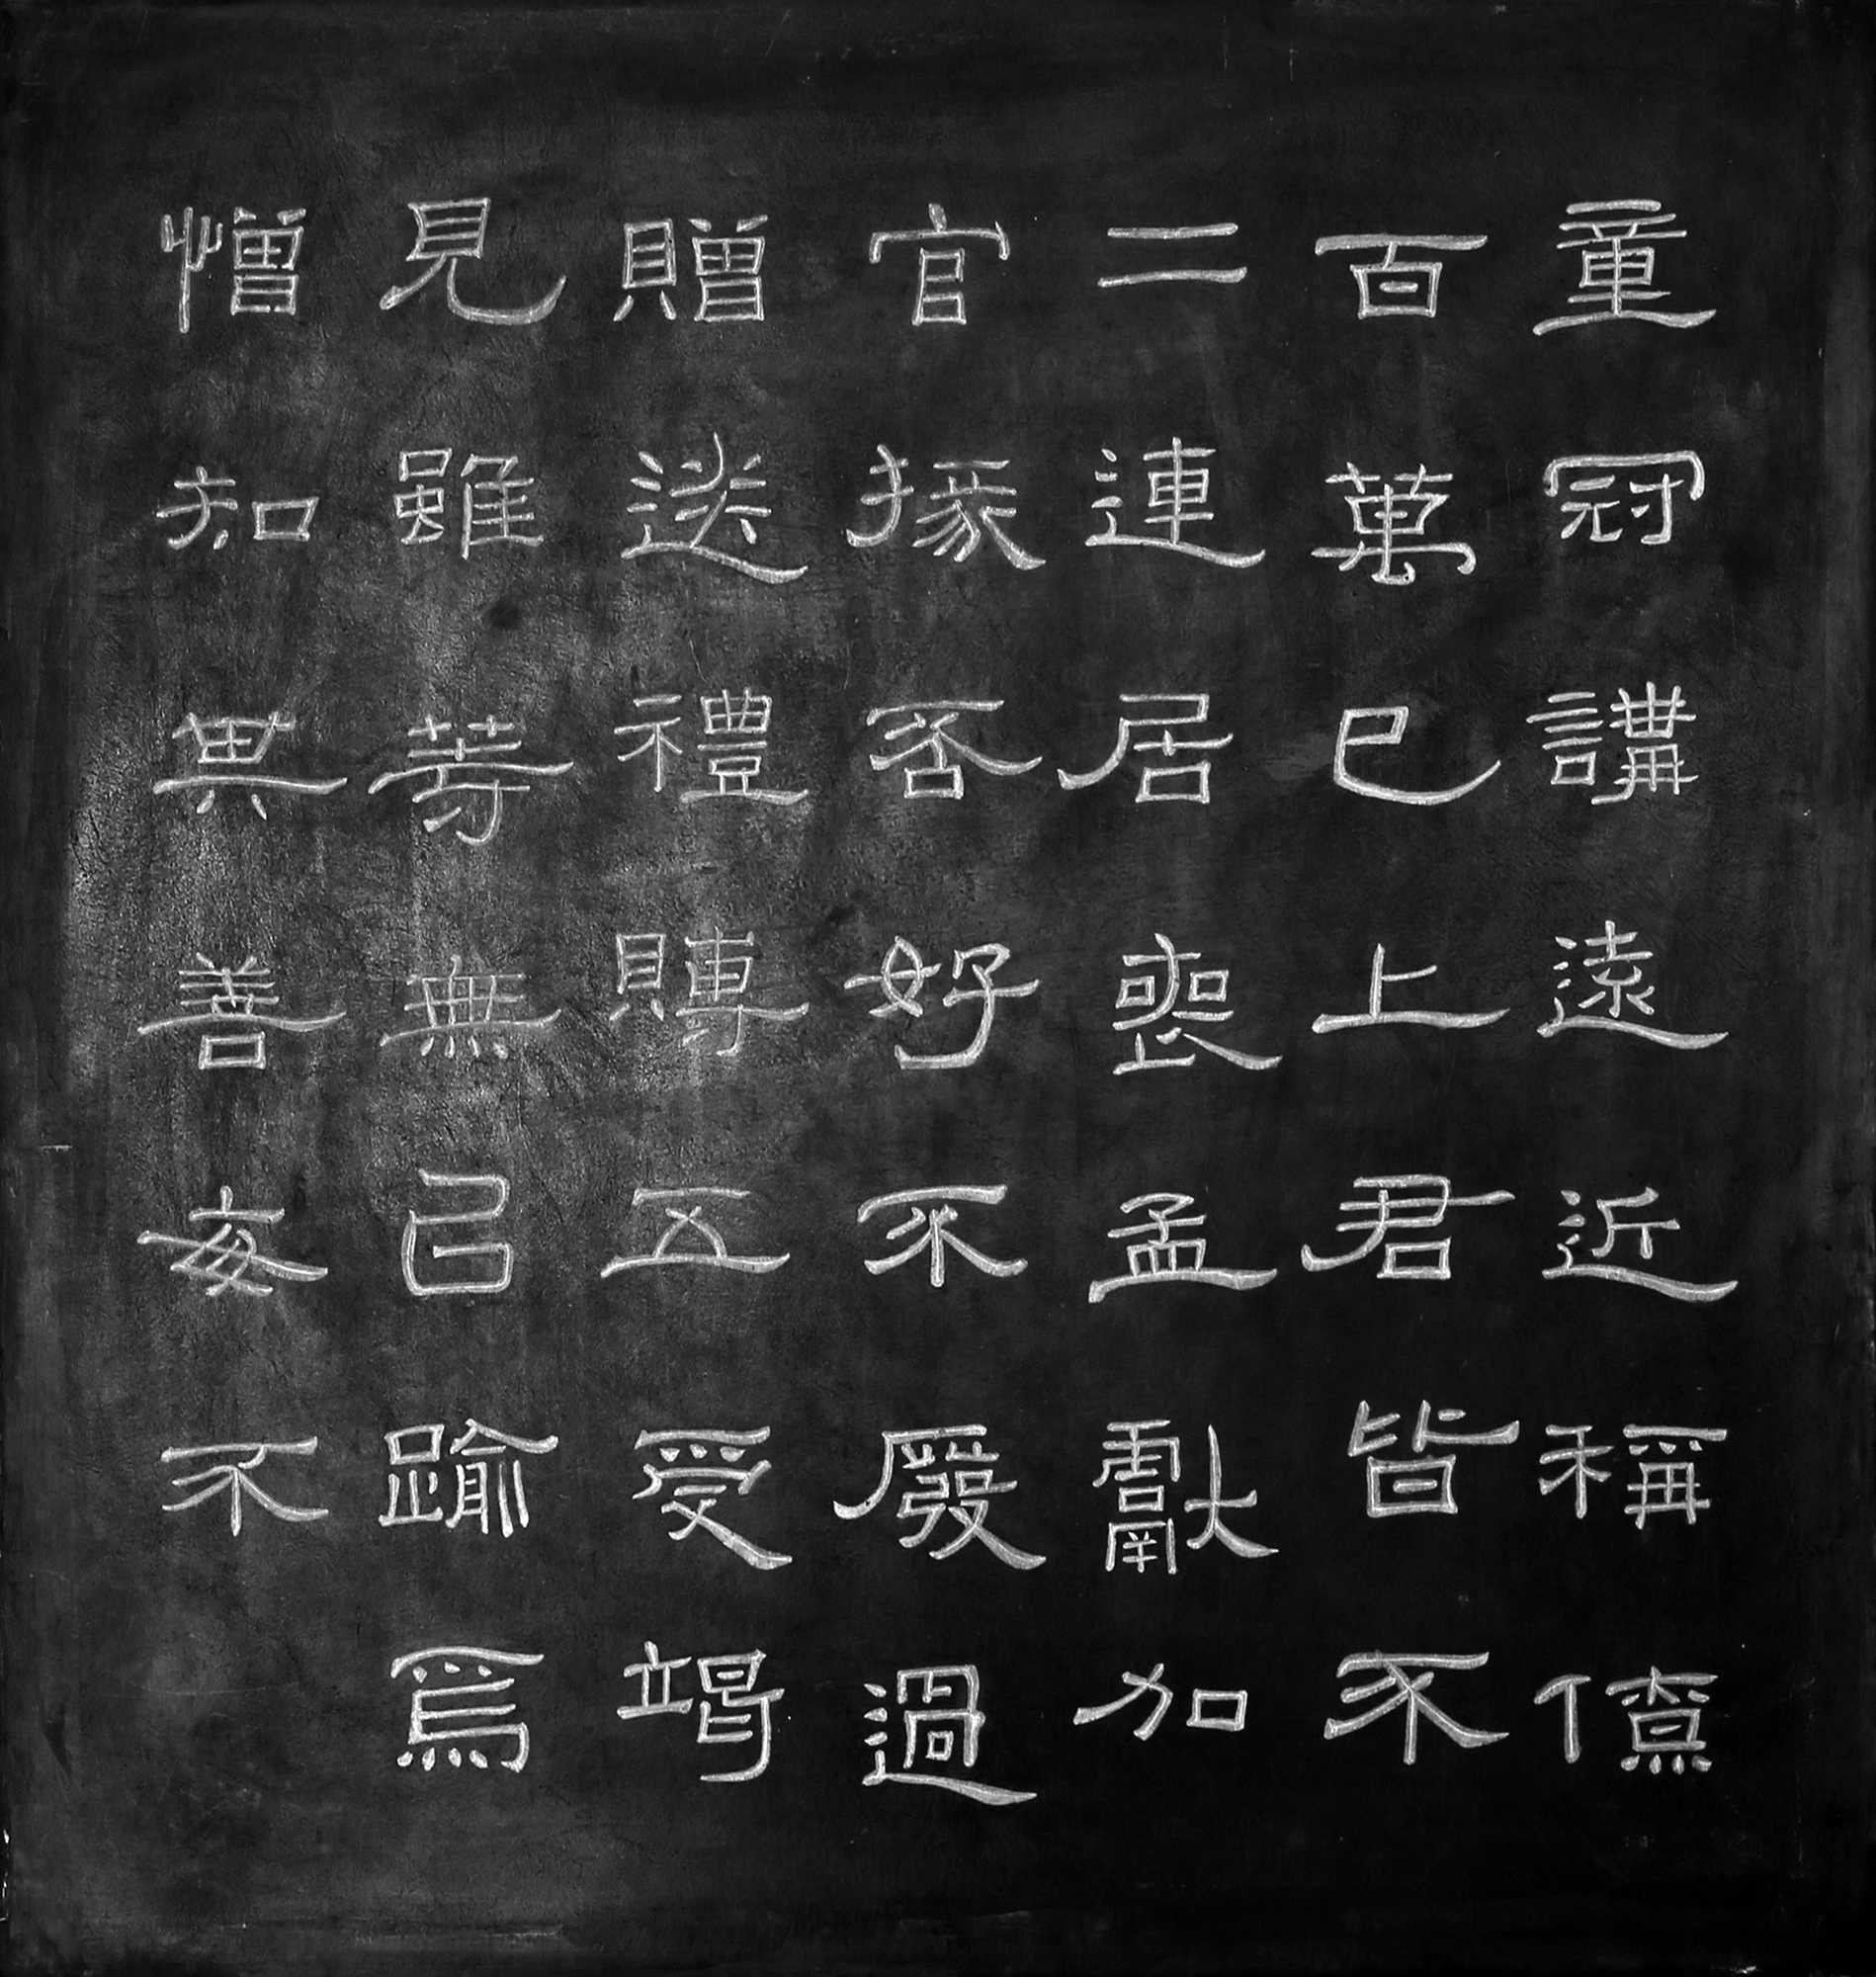 童冠講遠近稱僚
百萬已上君皆不
二連居喪孟獻加
官掾否好不廢過
贈送禮賻五受竭
見雖等無已踰爲
憎知其善不